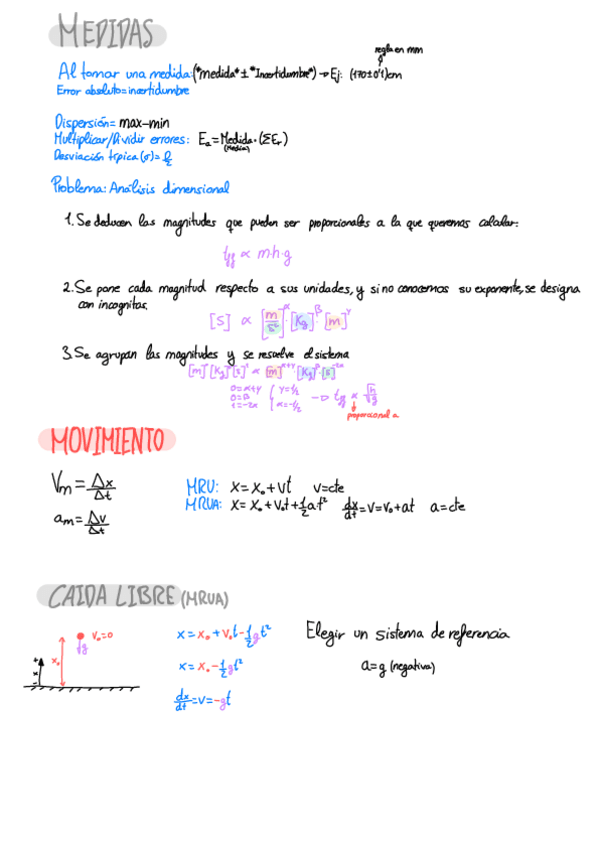 MEDIDAS
regla en mm
Al tomar una medida: ("medida" ± "Incertidumbre") → Ej: (170±0'1)cm
Error absoluto = incertidumbre
Dispersión = max-min
Multiplicar/Dividir errores: Ea = Medida · (ΣEr)
(Media)
Desviación típica (σ) =
Problema: Análisis dimensional
1. Se deducen las magnitudes que pueden ser proporcionales a la que queremos calcular.
∝ m·h·g
2. Se pone cada magnitud respecto a sus unidades, y si no conocemos su exponente, se designa
con incognitas.
[S] ∝ [m/s²]^α · [Kg]^β · [m]^γ
3. Se agrupan las magnitudes y se resuelve el sistema
[m]⁰[Kg]⁰[s]¹ ∝ [m]^α+γ [Kg]^β [s]^-2α
0=α+γ
0=β
1=-2α
γ=1/2
α=-1/2
→ ∝ √h/√g
proporcional a
MOVIMIENTO
Vm = Δx/Δt
am = Δv/Δt
MRU: x = x₀+vt v=cte
MRUA: x = x₀+v₀t+½at² dx/dt=v=v₀+at a=cte
CAIDA LIBRE (MRUA)
V₀=0
g
x₀
x
+
-
x = x₀+v₀t-½gt²
x = x₀-½gt²
dx/dt=v=-gt
Elegir un sistema de referencia
a=g (negativa)